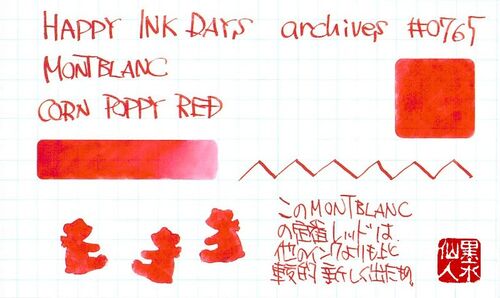 HAPPY INK DAYS archives #0765
MONTBLANC
CORN POPPY RED
このMONTBLANC
の定番レッドは、
他のインクよりも比
較的新しく出たもの。
墨水
仙人